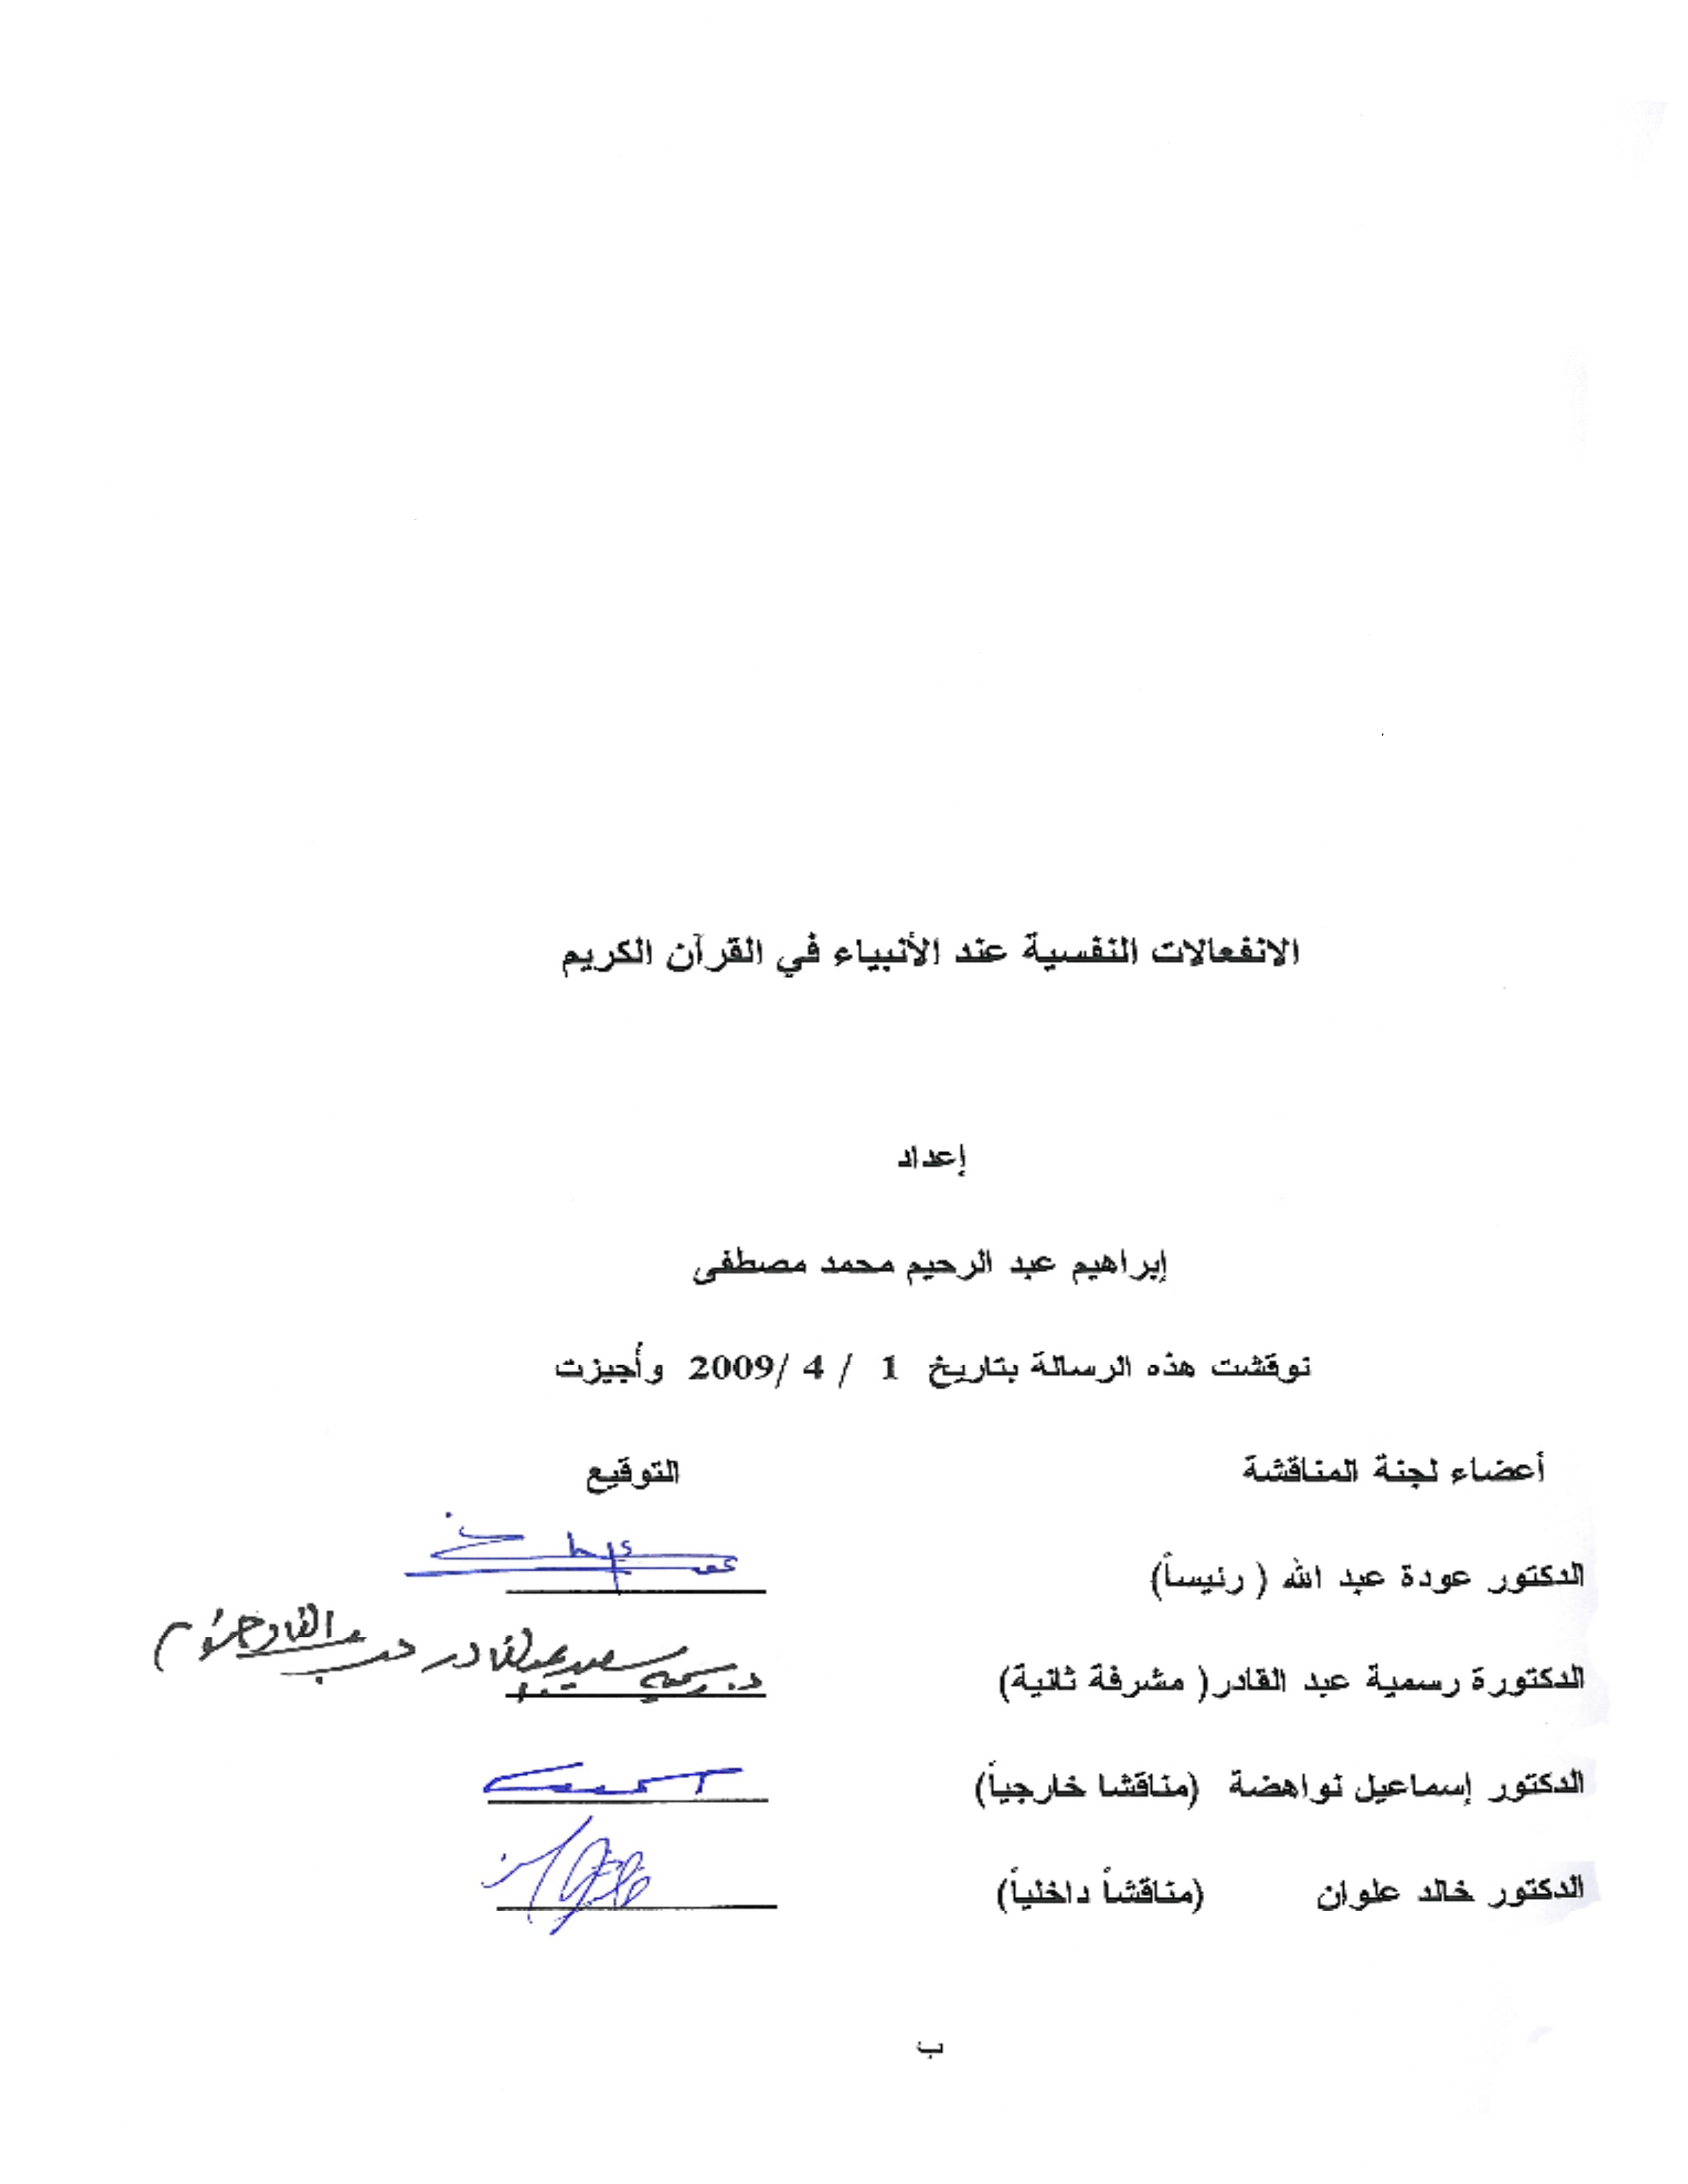 الانفعالات النفسية عند الأنبياء في القرآن الكريم
إعداد
إبراهيم عبد الرحيم محمد مصطفى
نوقشت هذه الرسالة بتاريخ 1 / 4 /2009 وأُجيزت
أعضاء لجنة المناقشة التوقيع
الدكتور عودة عبد الله ( رئيساً)
الدكتورة رسمية عبد القادر( مشرفة ثانية)
الدكتور إسماعيل نواهضة (مناقشا خارجياً)
الدكتور خالد علوان (مناقشاً داخلياً)
ب